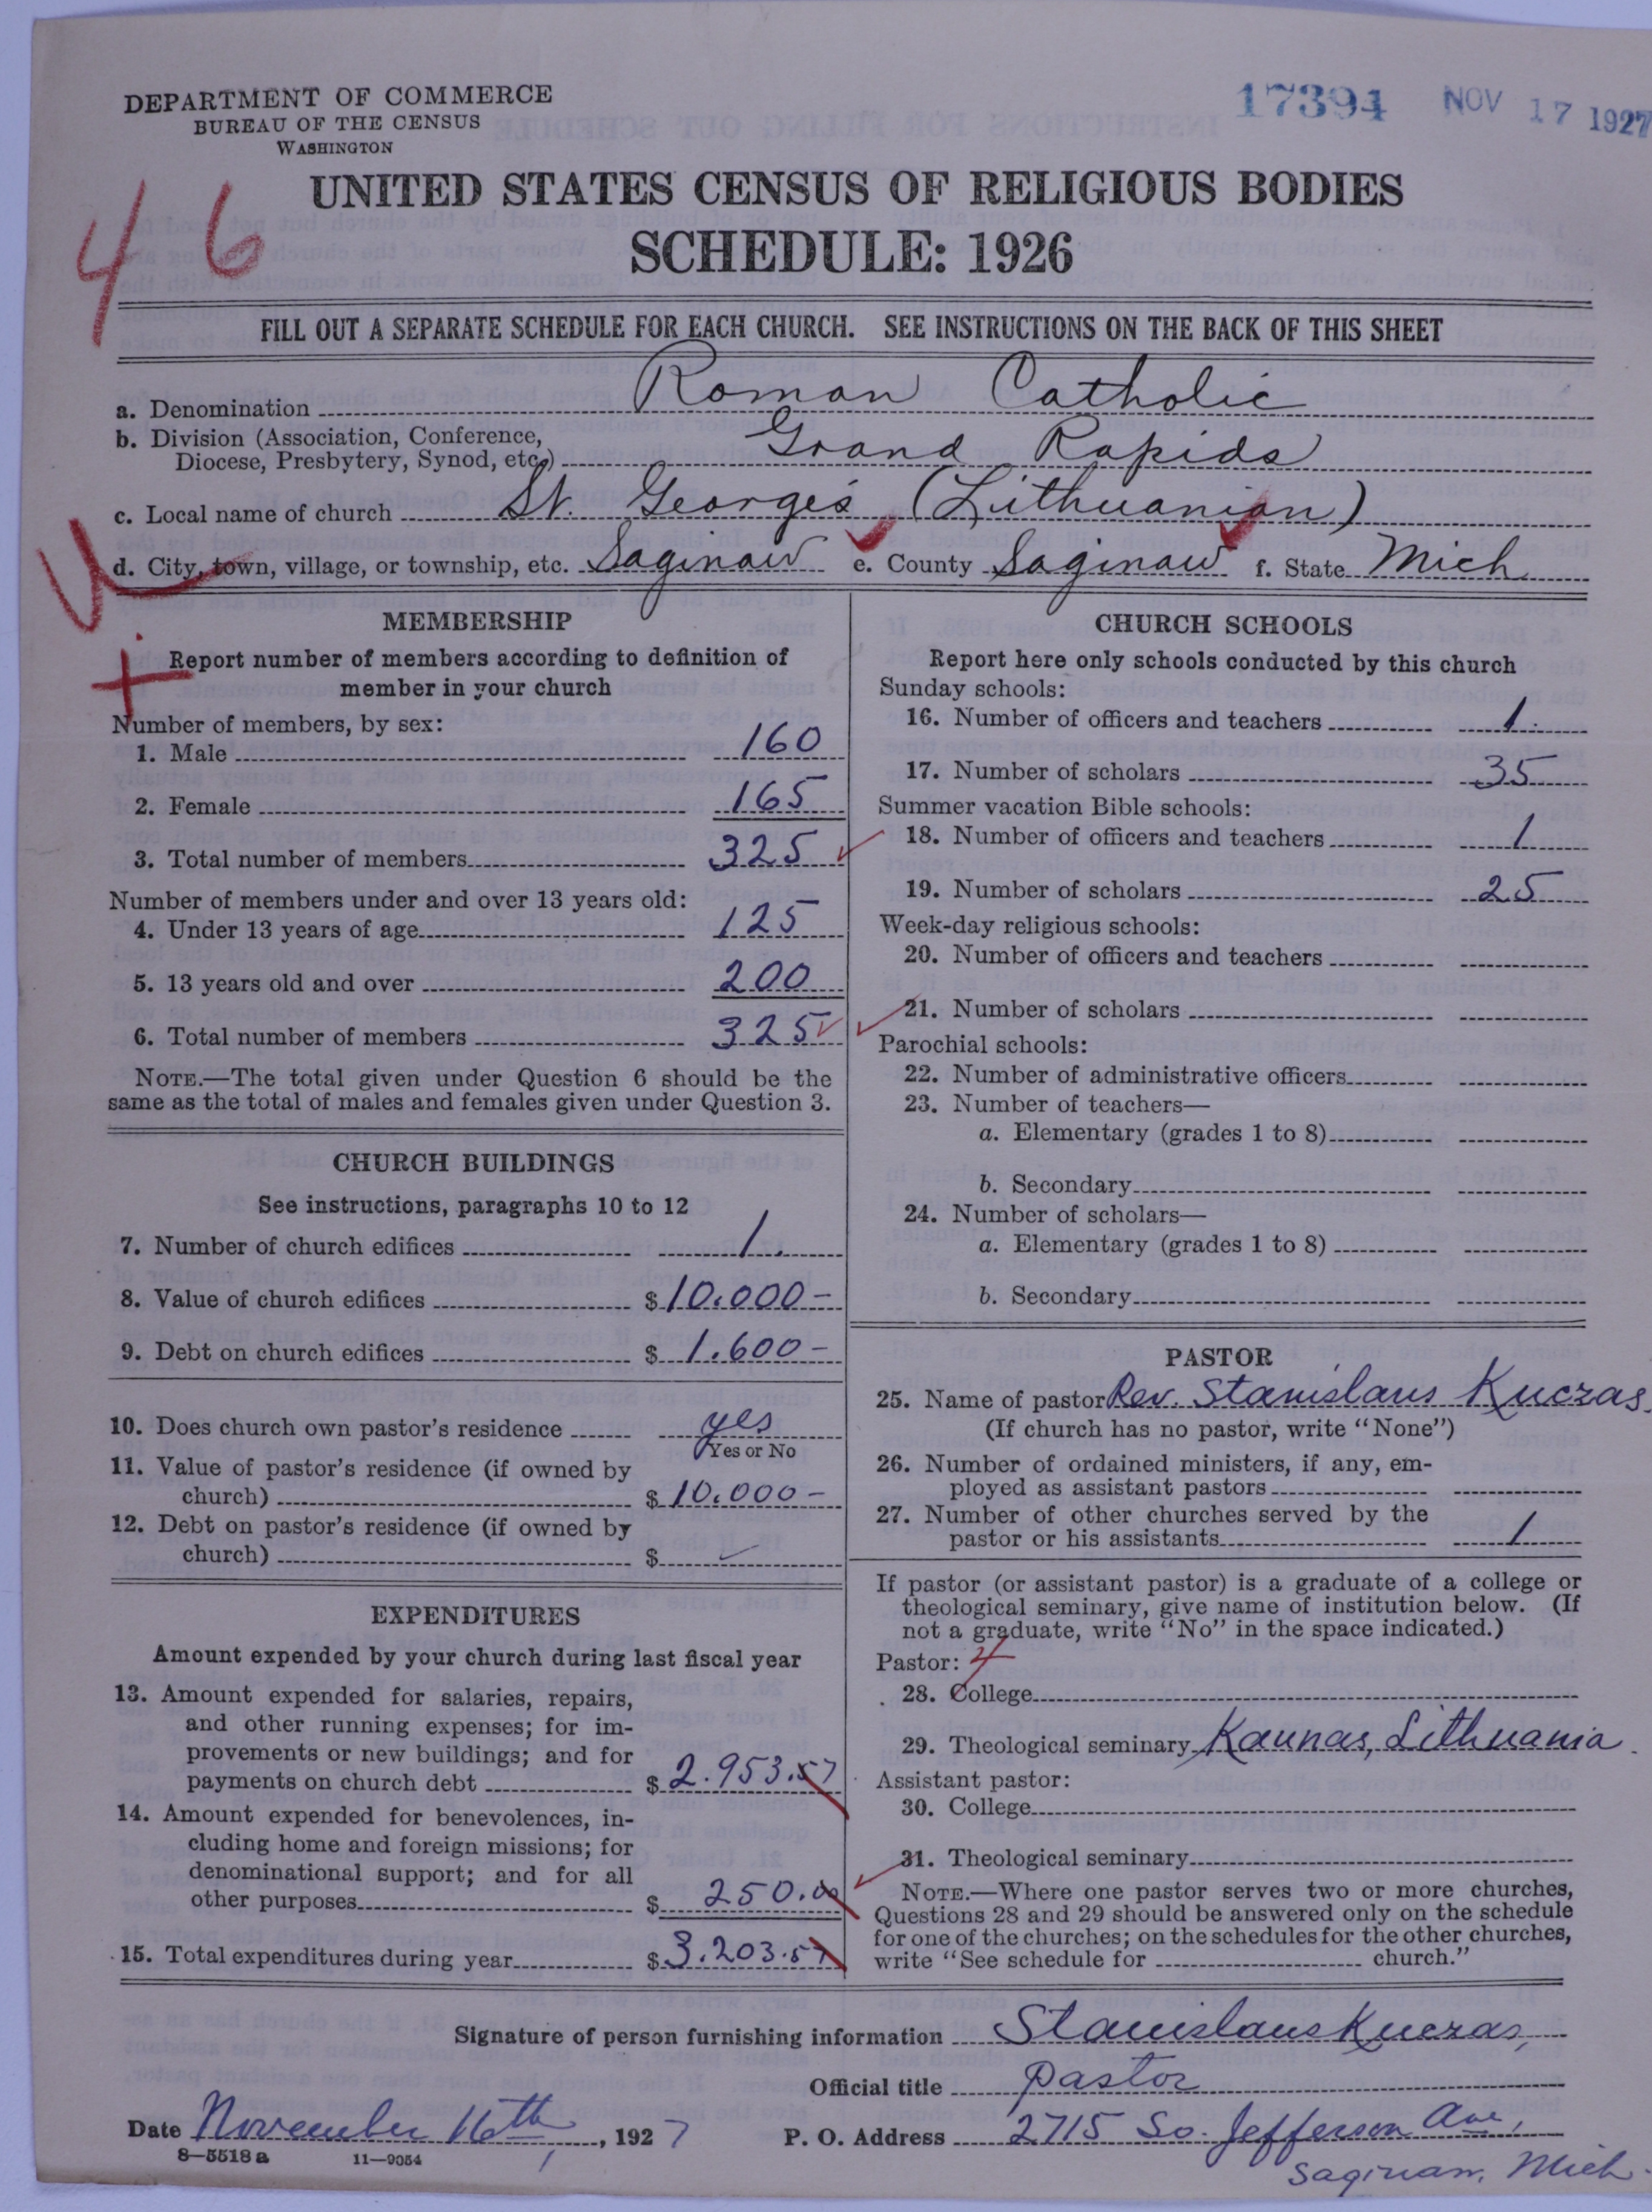 DEPARTMENT OF COMMERCE
BUREAU OF THE CENSUS
WASHINGTON
17394 NOV 17 1927
46
UNITED STATES CENSUS OF RELIGIOUS BODIES
SCHEDULE: 1926
FILL OUT A SEPARATE SCHEDULE FOR EACH CHURCH. SEE INSTRUCTIONS ON THE BACK OF THIS SHEET
a. Denomination Roman Catholic
b. Division (Association, Conference,
Diocese, Presbytery, Synod, etc.) Grand Rapids
c. Local name of church St. George's (Lithuanian)
d. City, town, village, or township, etc. Saginaw e. County Saginaw f. State Mich
MEMBERSHIP
Report number of members according to definition of
member in your church
Number of members, by sex:
1. Male 160
2. Female 165
3. Total number of members 325
Number of members under and over 13 years old:
4. Under 13 years of age 125
5. 13 years old and over 200
6. Total number of members 325
NOTE.—The total given under Question 6 should be the
same as the total of males and females given under Question 3.
CHURCH BUILDINGS
See instructions, paragraphs 10 to 12
7. Number of church edifices 1.
8. Value of church edifices $10.000-
9. Debt on church edifices $1.600-
10. Does church own pastor's residence yes
Yes or No
11. Value of pastor's residence (if owned by
church) $10.000-
12. Debt on pastor's residence (if owned by
church) $
EXPENDITURES
Amount expended by your church during last fiscal year
13. Amount expended for salaries, repairs,
and other running expenses; for im-
provements or new buildings; and for
payments on church debt $2.953.57
14. Amount expended for benevolences, in-
cluding home and foreign missions; for
denominational support; and for all
other purposes $250.00
15. Total expenditures during year $3.203.57
CHURCH SCHOOLS
Report here only schools conducted by this church
Sunday schools:
16. Number of officers and teachers 1.
17. Number of scholars 35
Summer vacation Bible schools:
18. Number of officers and teachers 1
19. Number of scholars 25
Week-day religious schools:
20. Number of officers and teachers
21. Number of scholars
Parochial schools:
22. Number of administrative officers
23. Number of teachers—
a. Elementary (grades 1 to 8)
b. Secondary
24. Number of scholars—
a. Elementary (grades 1 to 8)
b. Secondary
PASTOR
25. Name of pastor Rev. Stanislaus Kuczas.
(If church has no pastor, write "None")
26. Number of ordained ministers, if any, em-
ployed as assistant pastors
27. Number of other churches served by the
pastor or his assistants 1
If pastor (or assistant pastor) is a graduate of a college or
theological seminary, give name of institution below. (If
not a graduate, write "No" in the space indicated.)
Pastor: 4
28. College
29. Theological seminary Kaunas, Lithuania.
Assistant pastor:
30. College
31. Theological seminary
NOTE.—Where one pastor serves two or more churches,
Questions 28 and 29 should be answered only on the schedule
for one of the churches; on the schedules for the other churches,
write "See schedule for church."
Signature of person furnishing information Stanislaus Kuczas,
Official title Pastor
Date November 16th, 1927 P. O. Address 2715 So. Jefferson Ave,
8—5518a 11—9054
Saginaw, Mich.